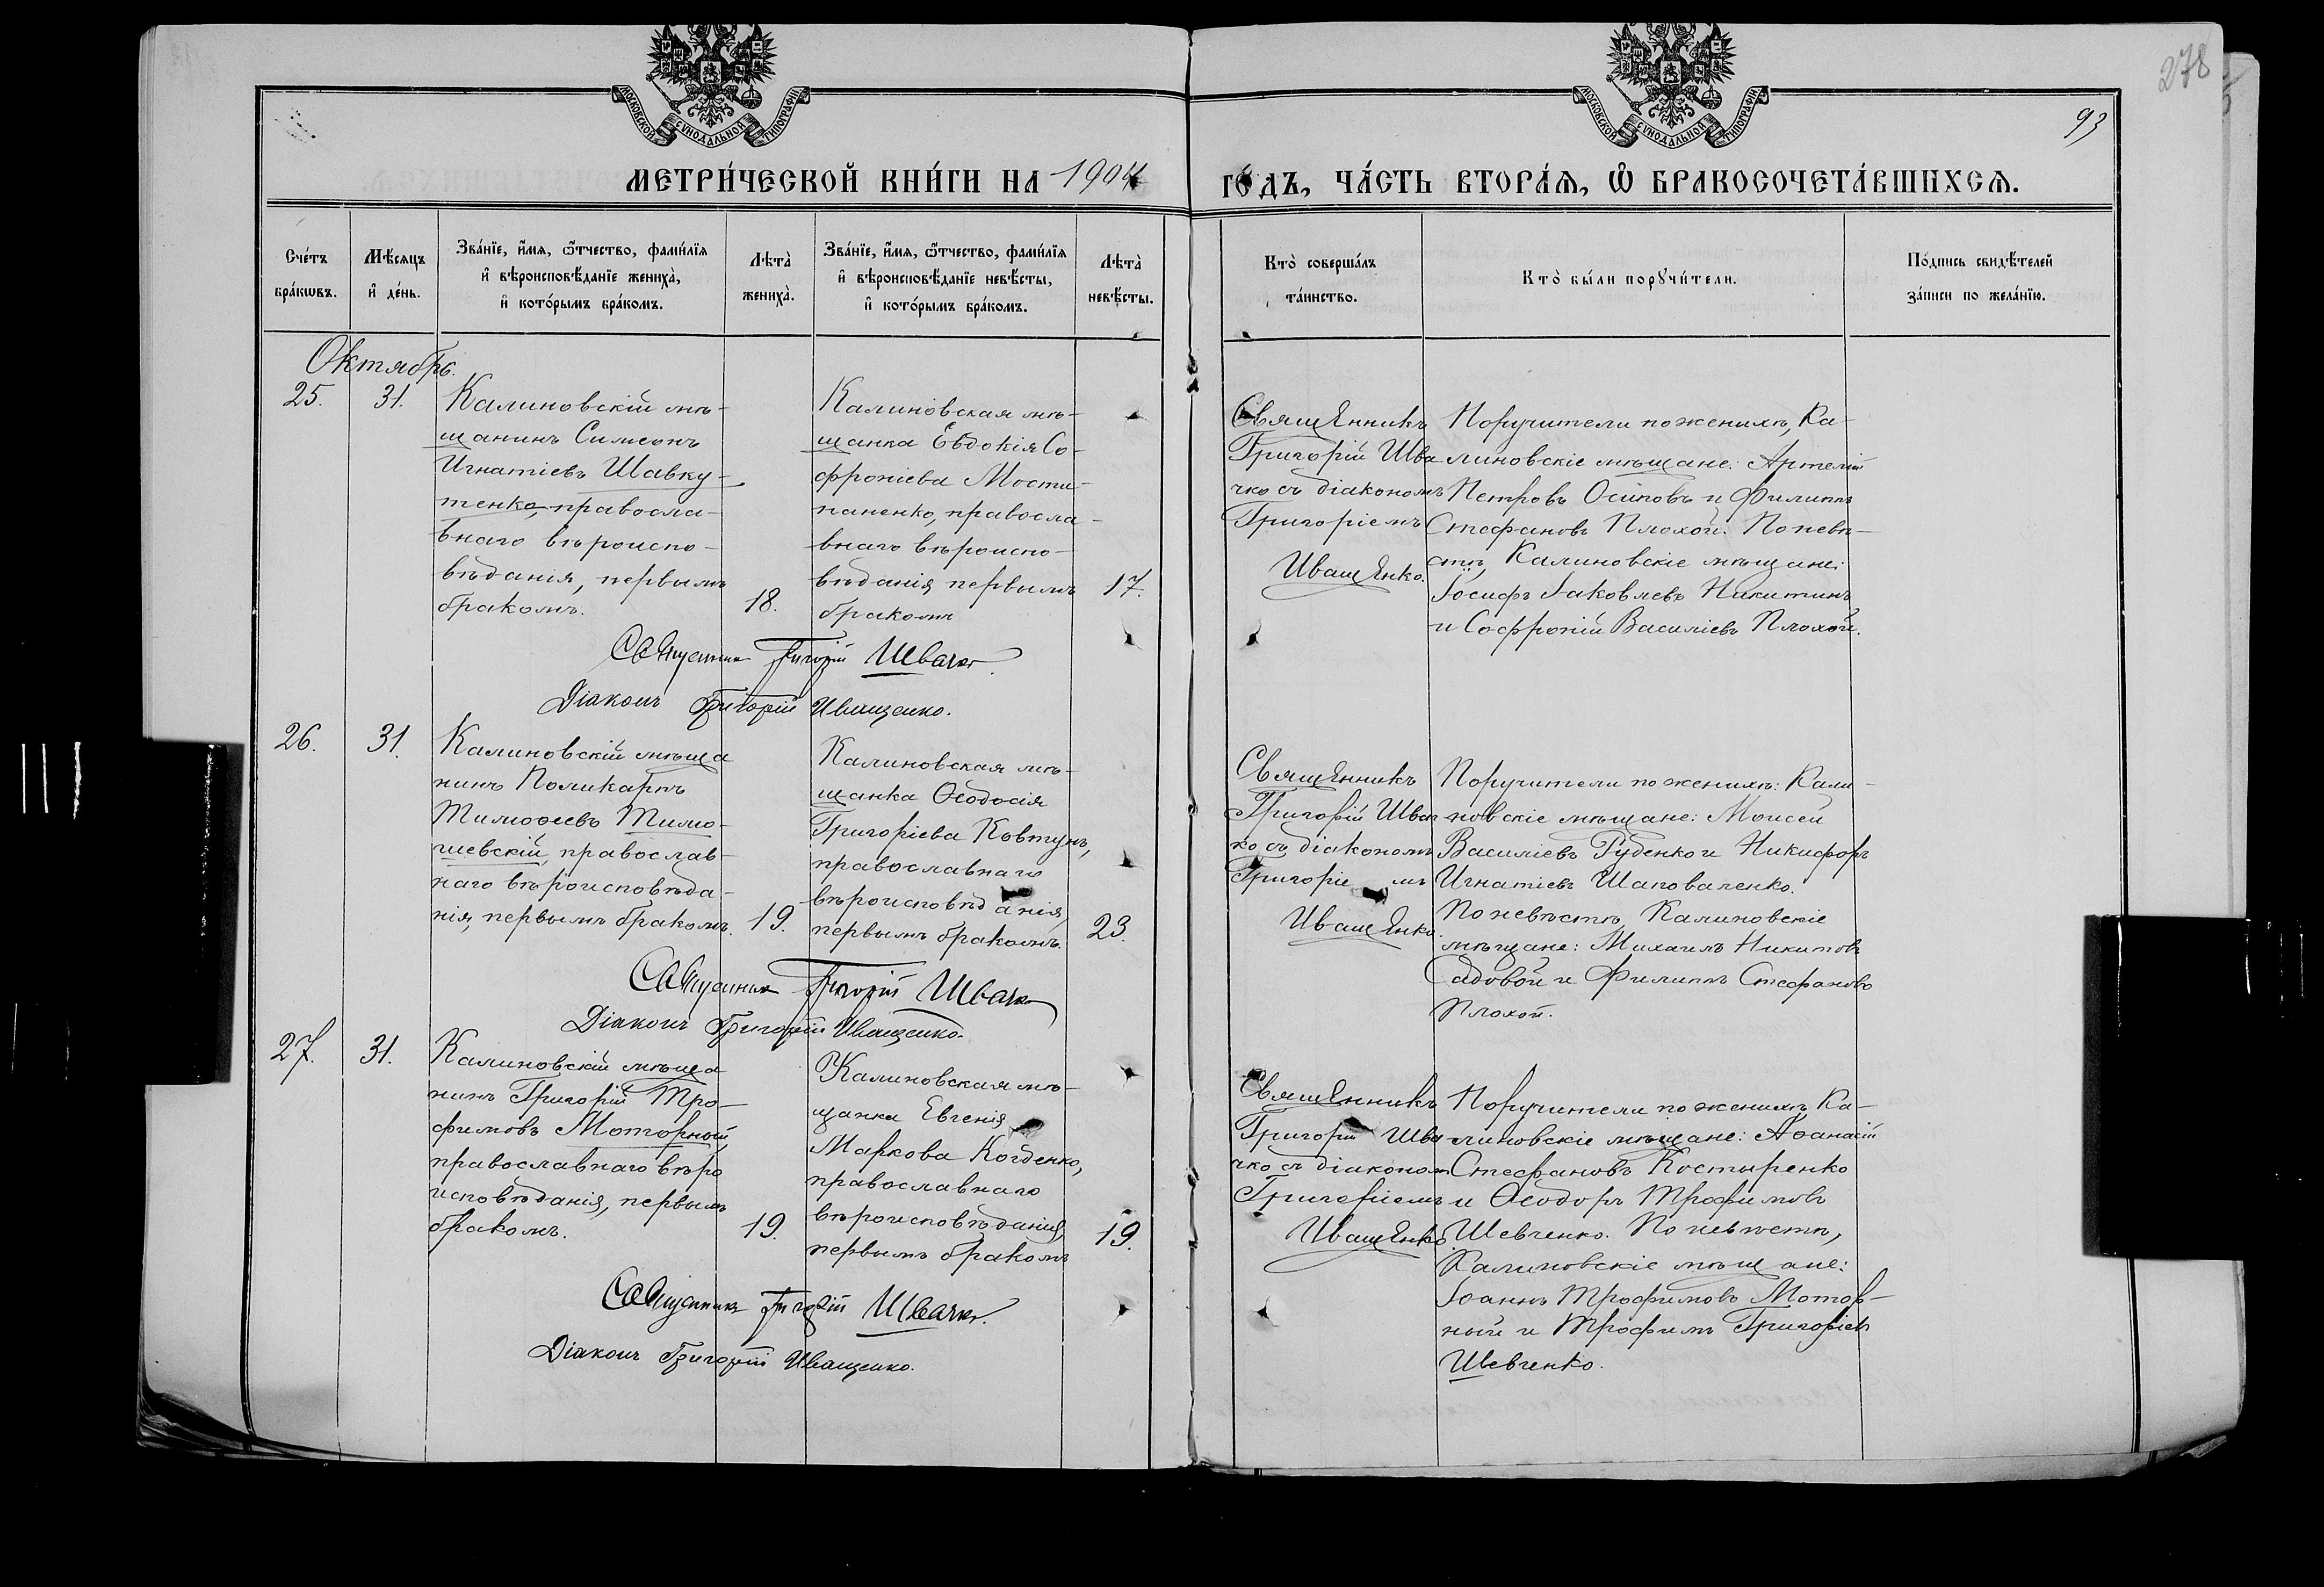 278
93
МОСКОВСКОЙ СѴНОДАЛЬНОЙ ТИПОГРАФІИ
МОСКОВСКОЙ СѴНОДАЛЬНОЙ ТИПОГРАФІИ
МЕТРИ́ЧЕСКОЙ КНИ́ГИ НА 1904 ГО́ДЪ, ЧА́СТЬ ВТОРА́Ѧ, Ѡ҆ БРАКОСОЧЕТА́ВШИХСѦ.
Сче́тъ
бра́кѡвъ.
Мѣ́сѧцъ
и҆ де́нь.
Зва́нїе, и҆́мѧ, ѻ҆́тчество, фами́лїѧ
и҆ вѣроисповѣ́данїе жениха̀,
и҆ кото́рымъ бра́комъ.
Лѣта̀
жениха̀.
Зва́нїе, и҆́мѧ, ѻ҆́тчество, фами́лїѧ
и҆ вѣроисповѣ́данїе невѣ́сты,
и҆ кото́рымъ бра́комъ.
Лѣта̀
невѣ́сты.
Кто̀ соверша́лъ
та́инство.
Кто̀ бы́ли порꙋчи́тели.
По́дпись свидѣ́телей
за́писи по жела́нїю.
Октябрь.
25.
31.
Калиновскій мѣ-
щанинъ Симеонъ
Игнатіевъ Шавку-
тенко, правосла-
внаго вѣроиспо-
вѣданія, первымъ
бракомъ.
18.
Калиновская мѣ-
щанка Евдокія Со-
фроніева Мости-
паненко, правосла-
внаго вѣроиспо-
вѣданія первымъ
бракомъ
17.
Священникъ
Григорій Шва
чко съ діакономъ
Григоріемъ
Иващенко.
Поручители по женихѣ, Ка-
линовскіе мѣщане: Артемій
Петровъ Осиповъ и Филиппъ
Стефановъ Плохой. По невѣ-
стѣ, Калиновскіе мѣщане:
Іосифъ Іаковлевъ Никитинъ
и Софроній Василіевъ Плохой.
Священникъ Григорій Швачко.
Діаконъ Григорій Иващенко.
26.
31.
Калиновскій мѣща
нинъ Поликарпъ
Тимоѳеевъ Тимо-
шевскій, православ-
наго вѣроисповѣда-
нія, первымъ бракомъ.
19.
Калиновская мѣ-
щанка Ѳеодосія
Григоріева Ковтунъ,
православнаго
вѣроисповѣданія,
первымъ бракомъ.
23.
Священникъ
Григорій Швач
ко съ діакономъ
Григоріемъ
Иващенко.
Поручители по женихѣ: Кали-
новскіе мѣщане: Моисей
Василіевъ Руденко и Никифоръ
Игнатіевъ Шаповаленко.
По невѣстѣ, Калиновскіе
мѣщане: Михаилъ Никитовъ
Садовой и Филиппъ Стефановъ
Плохой.
Священникъ Григорій Швачко
Діаконъ Григорій Иващенко.
27.
31.
Калиновскій мѣща
нинъ Григорій Тро-
фимовъ Моторной,
православнаго вѣро
исповѣданія, первымъ
бракомъ.
19.
Калиновская мѣ-
щанка Евгенія
Маркова Когденко,
православнаго
вѣроисповѣданія,
первымъ бракомъ
19.
Священникъ
Григорій Шва
чко съ діаконом
Григоріемъ
Иващенко.
Поручители по женихѣ, Ка-
линовскіе мѣщане: Аѳанасій
Стефановъ Костыренко
и Ѳеодоръ Трофимовъ
Шевченко. По невѣстѣ,
Калиновскіе мѣщане:
Іоаннъ Трофимовъ Мотор-
ный и Трофимъ Григоріев
Шевченко.
Священникъ Григорій Швачко.
Діаконъ Григорій Иващенко.